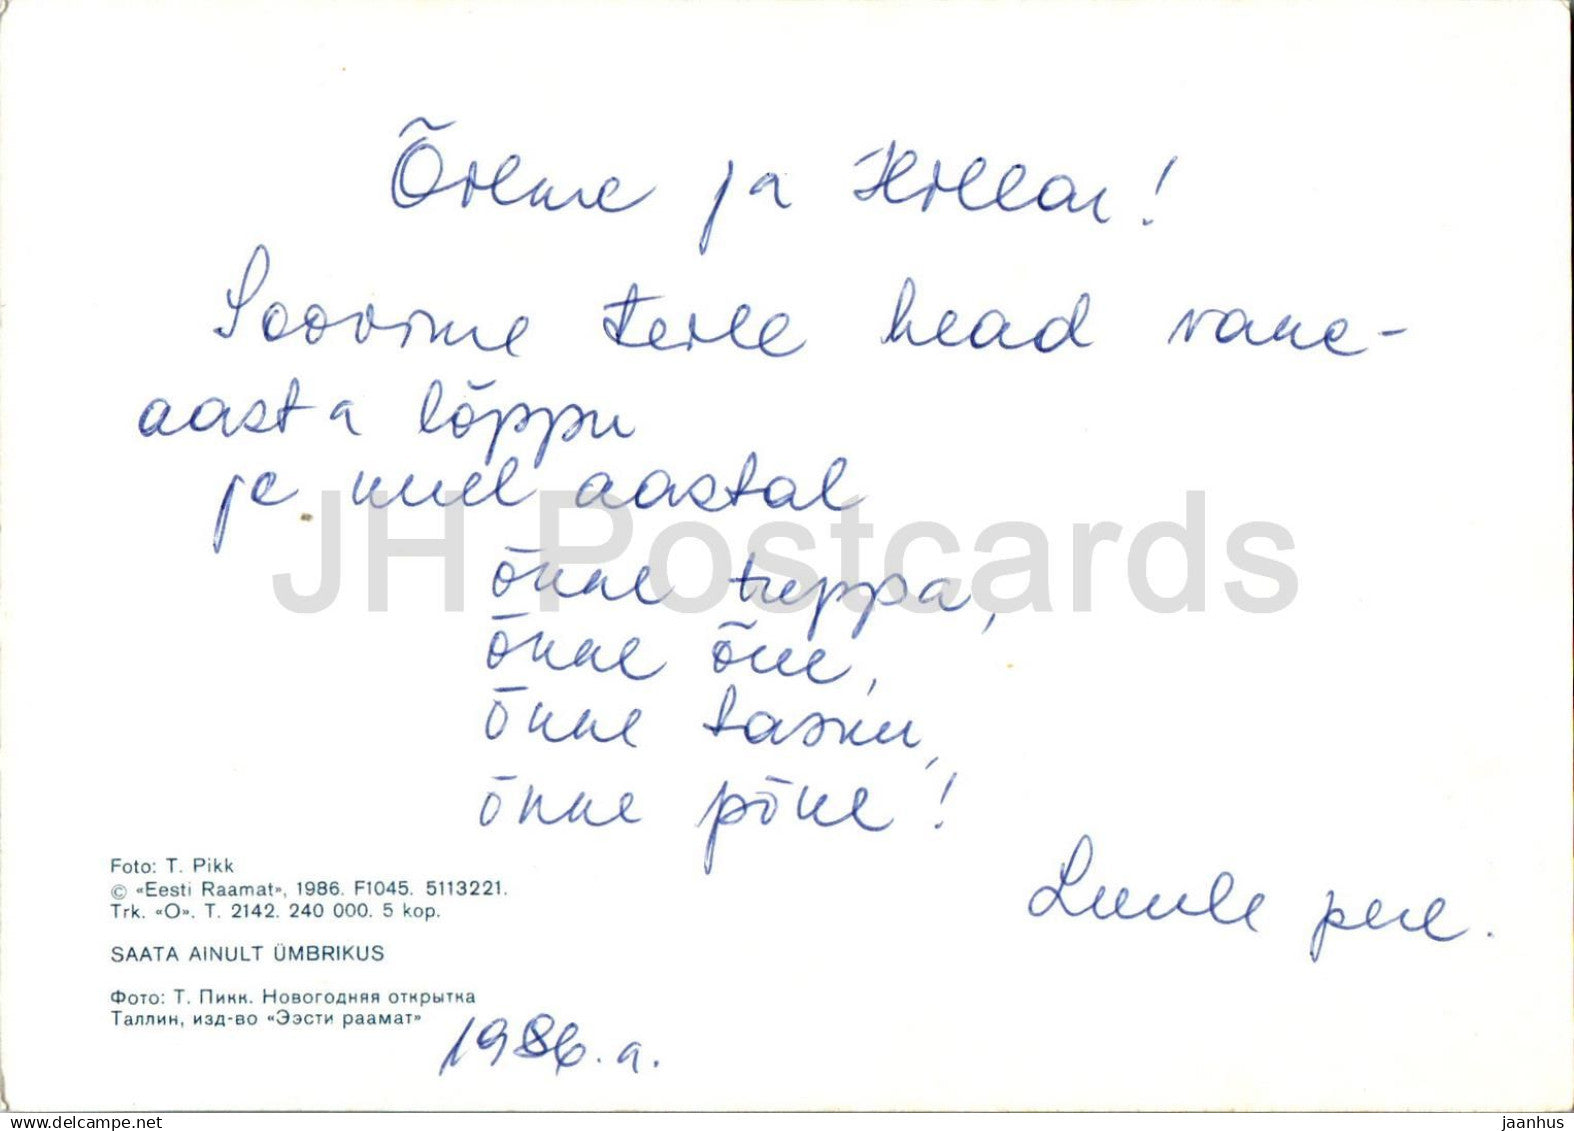 Õilme ja Hillar!
Soovime Teile head vana-
aasta lõppu
ja uuel aastal
õnne tuppa,
õnne õue,
õnne tasku,
õnne põue!
Luule pere.
Foto: T. Pikk
© «Eesti Raamat», 1986. F1045. 5113221.
Trk. «O». T. 2142. 240 000. 5 kop.
SAATA AINULT ÜMBRIKUS
Фото: Т. Пикк. Новогодняя открытка
Таллин, изд-во «Ээсти раамат»
1986. a.
JH Postcards
delcampe.net
jaanhus